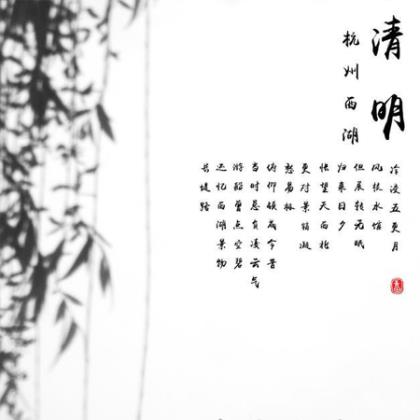 清明
杭州西湖
冷浸五更月
风水
但展转无眠
归来日夕
怅望天西北
更对景销凝
愁易极
俯仰顿成今昔
当时负凌云气
游曾点空碧
还忆西湖景物
长堤路